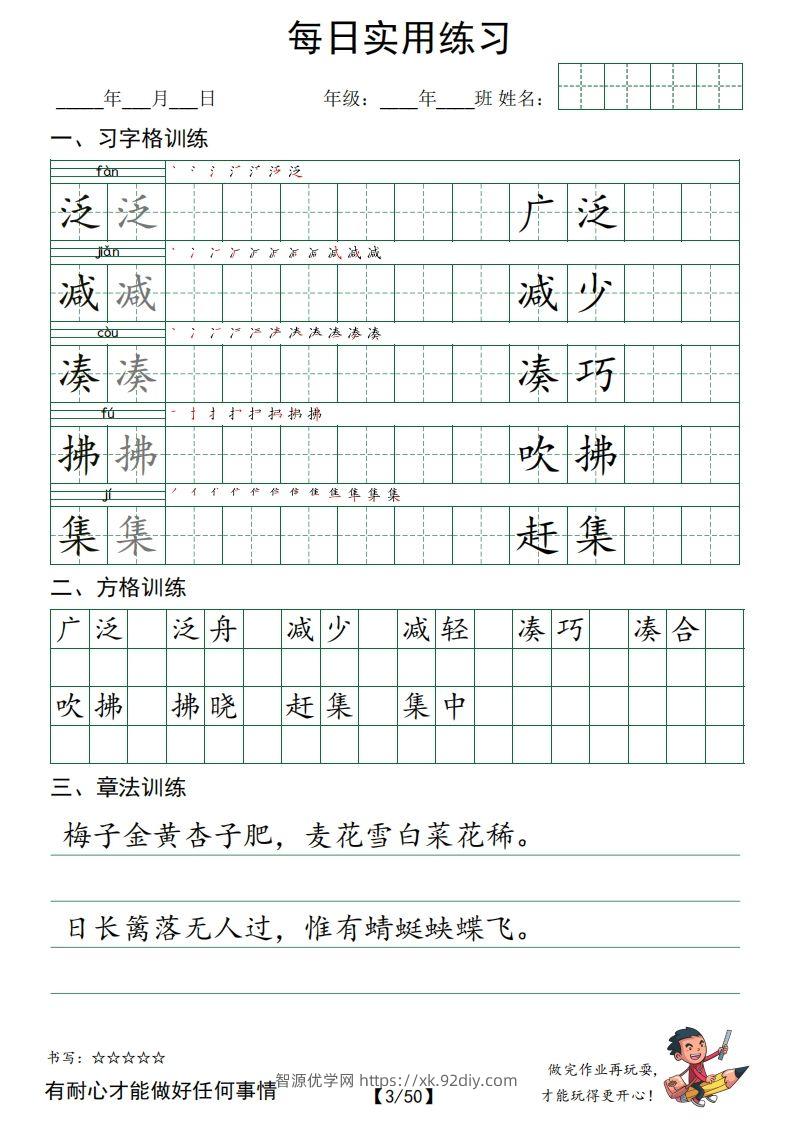 每日实用练习
_____年___月___日 年级：____年____班 姓名：
一、习字格训练
fàn
泛 泛 广 泛
jiǎn
减 减 减 少
còu
凑 凑 凑 巧
fú
拂 拂 吹 拂
jí
集 集 赶 集
二、方格训练
广 泛 泛 舟 减 少 减 轻 凑 巧 凑 合
吹 拂 拂 晓 赶 集 集 中
三、章法训练
梅子金黄杏子肥，麦花雪白菜花稀。
日长篱落无人过，惟有蜻蜓蛱蝶飞。
书写：☆☆☆☆☆
有耐心才能做好任何事情
智源优学网 https://xk.92diy.com
【3/50】
做完作业再玩耍，
才能玩得更开心！